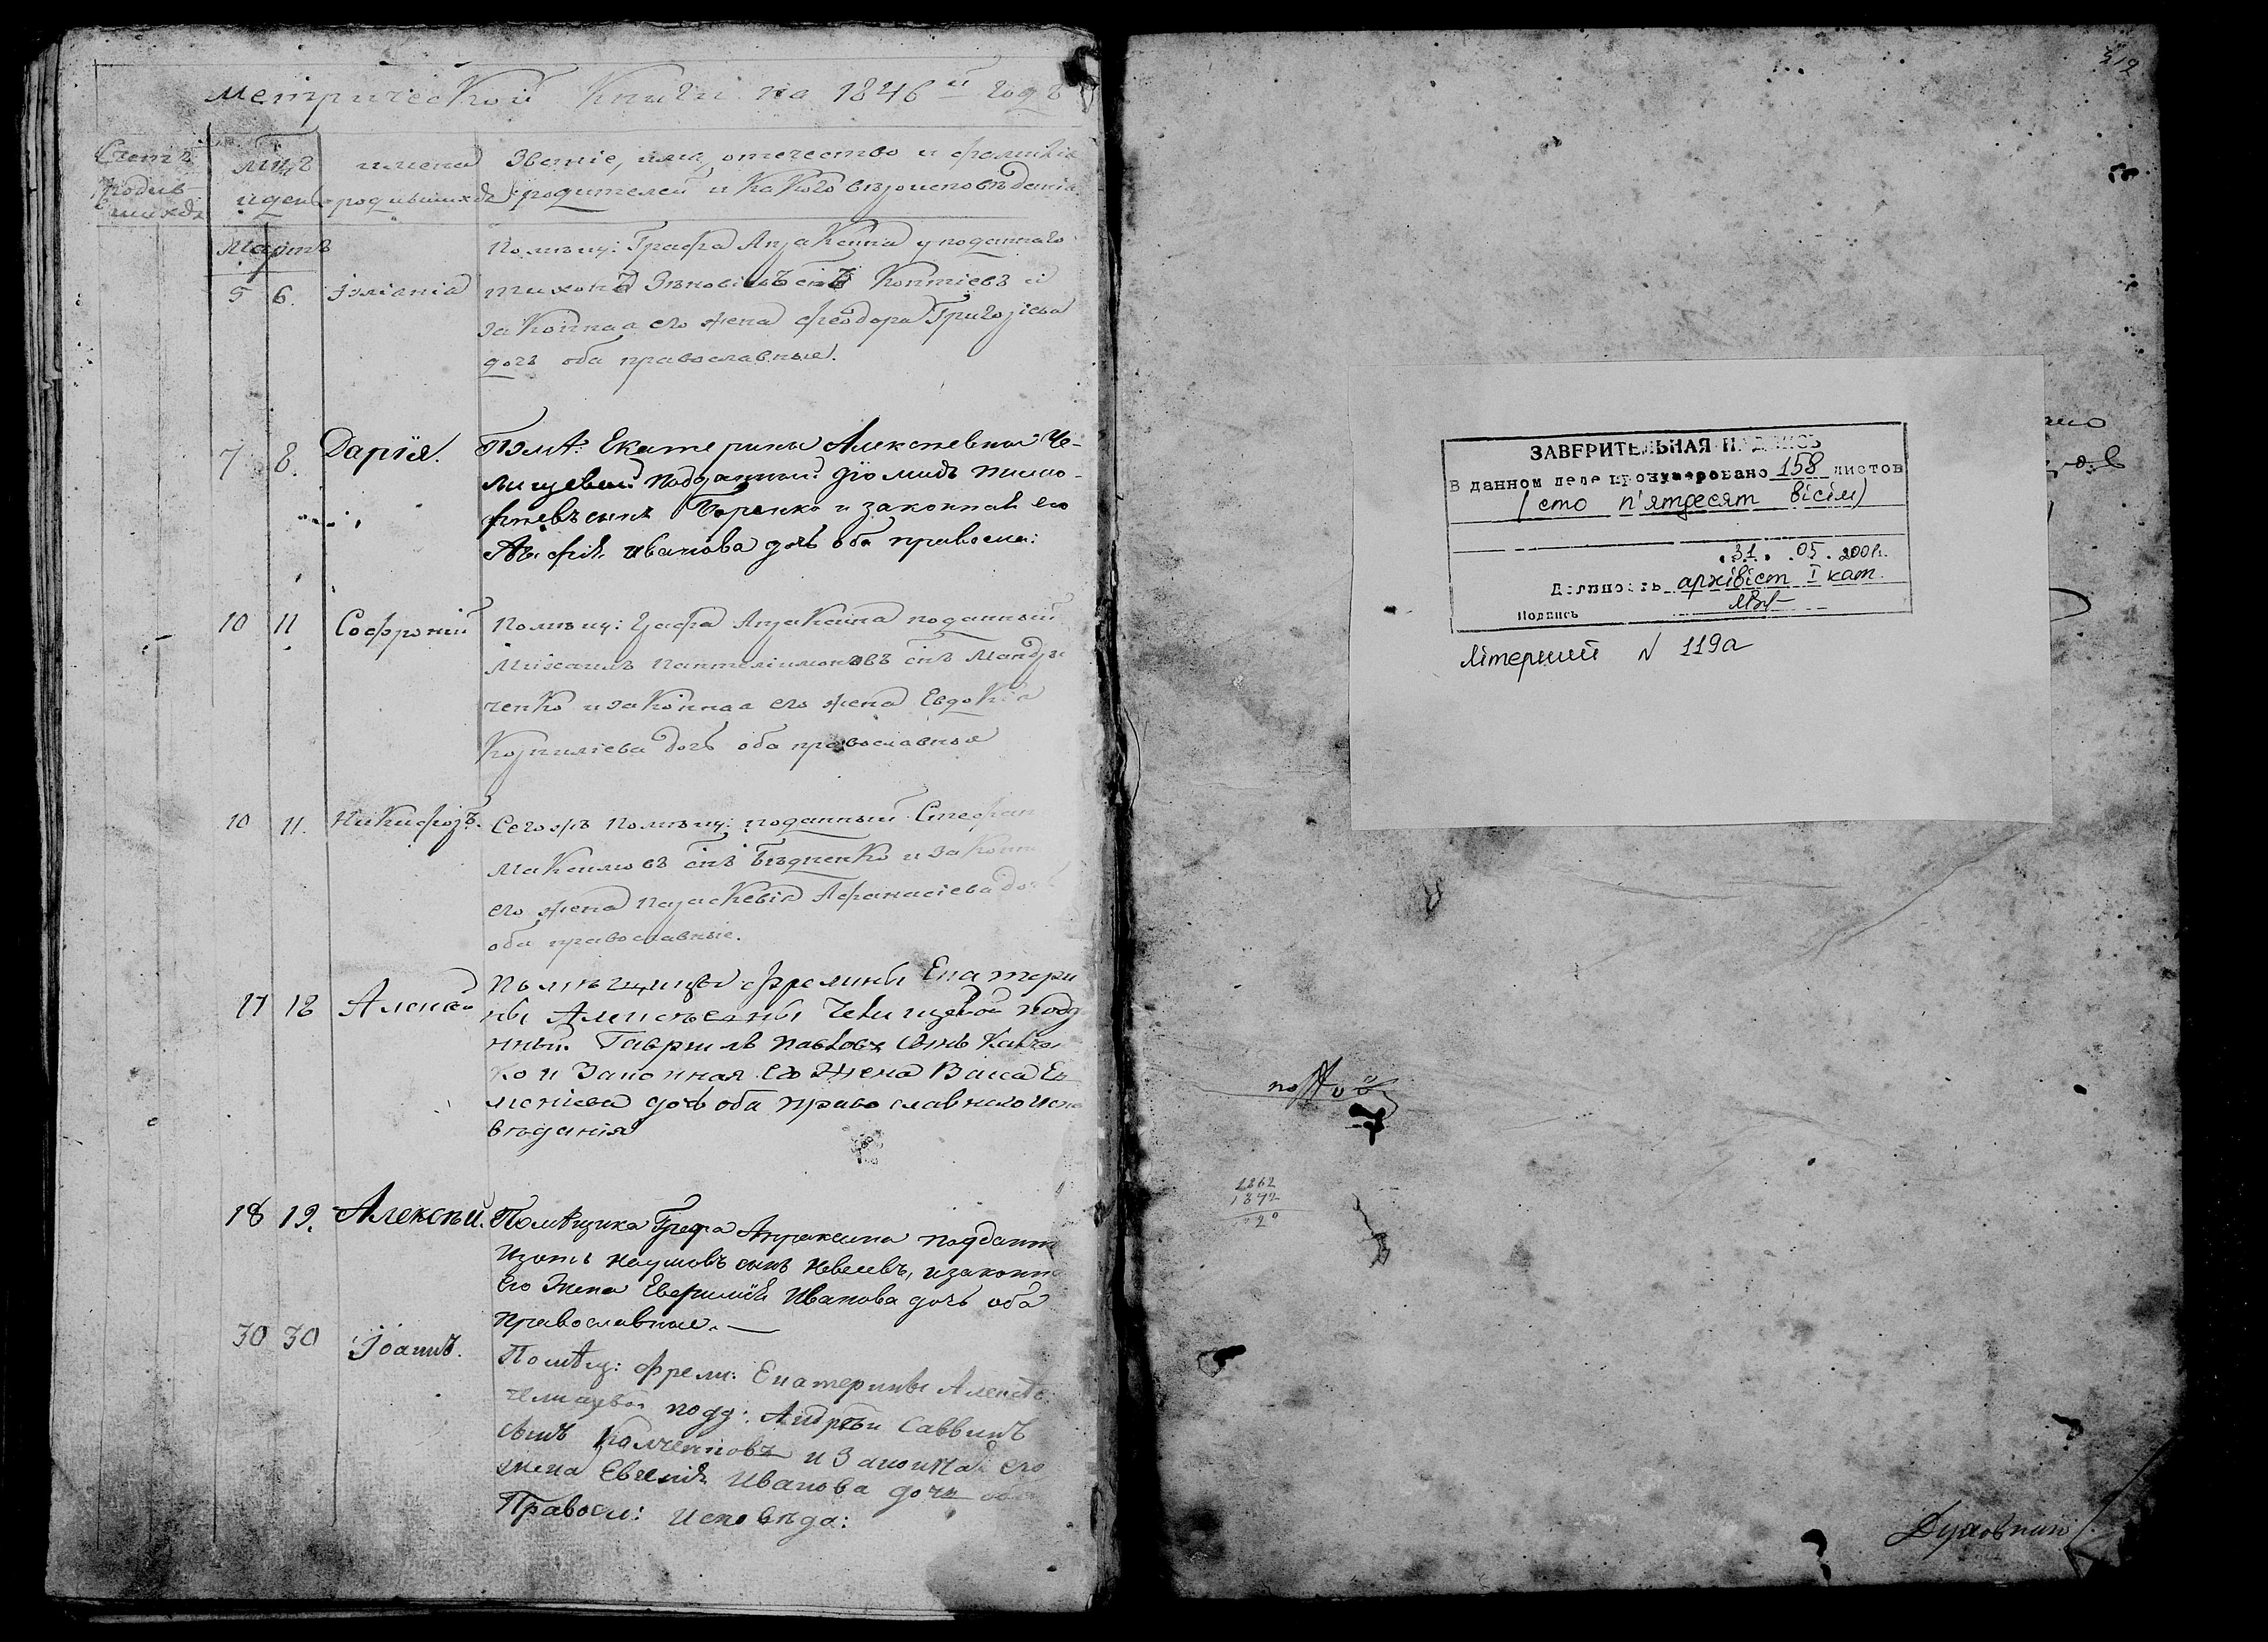 Метрической Книги на 1846й годъ
Счетъ родив-шихся
мцъ и день
имена родившихся
Званіе, имя, отечество и фамиліа
родителей и какого вѣроисповѣданіа
Мартъ
5 6. Іуліаніа
Помѣщ: Графа Апраксина у подданаго
Тихона Зѣновіевъ снъ Коптіевъ и
законнаа его жена Феодора Григоріева
дочъ оба православные.
7 8. Дарія.
Помѣ: Екатерины Алексѣевны Че-
лищевой подданный Діомидъ Тимо-
фѣевъ сынъ и законная его
Иванова дочь оба правосла:
10 11 Софроній
Помѣщ: Графа Апраксина поданный
Михаилъ Пантелеимоновъ снъ Мандри
ченко и законнаа его жена Евдокіа
Корниліева дочъ оба православныя
10 11. Никифоръ.
Сегожъ Помѣщ: поданный Стефан
Максимовъ снъ Бѣдненко и законн
его жена Параскевіа Афанасіева доч
оба православные.
17 18 Алексей
Помѣщицы фрелины Екатери
ны Алексѣевны Челищевой подд
нный Гавриилъ Павловъ сынъ
ко и Законная его Жена Васса
дочь оба православнаго испо
вѣданія
18 19. Алексѣй.
Помѣщика Графа Апраксина поддан
Изотъ Наумовъ сынъ Невеевъ, и законн
его Жена Евфимія Иванова дочь оба
православные.—
30 30 Іоаннъ.
Помѣщ: фрели: Екатерины Алексѣ
челищевой подд: Андрѣй Саввинъ
сынъ Колченковъ и Законная его
жена Евгенія Иванова дочь оба
Правосл: Исповѣда:
ЗАВЕРИТЕЛЬНАЯ НАДПИСЬ
В данном деле пронумеровано 158 листов
(сто п'ятдесят вісім)
31. 05. 200 г.
Должность архівіст I кат.
Подпись
літерний N 119а
1862
1842
Духовний